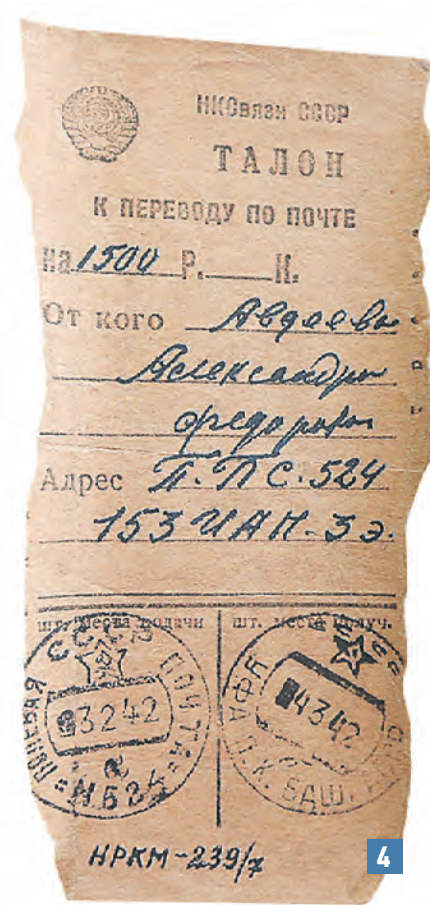 НКСвязи СССР
ТАЛОН
К ПЕРЕВОДУ ПО ПОЧТЕ
на 1500 Р. К.
От кого Авдеева
Александра
Федоровича
Адрес П.П.С. 524
153 ИАП-3э.
шт. места подачи
шт. места получ.
СССР
ПОЛЕВАЯ ПОЧТА
3 2 42
а
4 3 42
УФА П.К. БАШ.
НРКМ-239/7
4